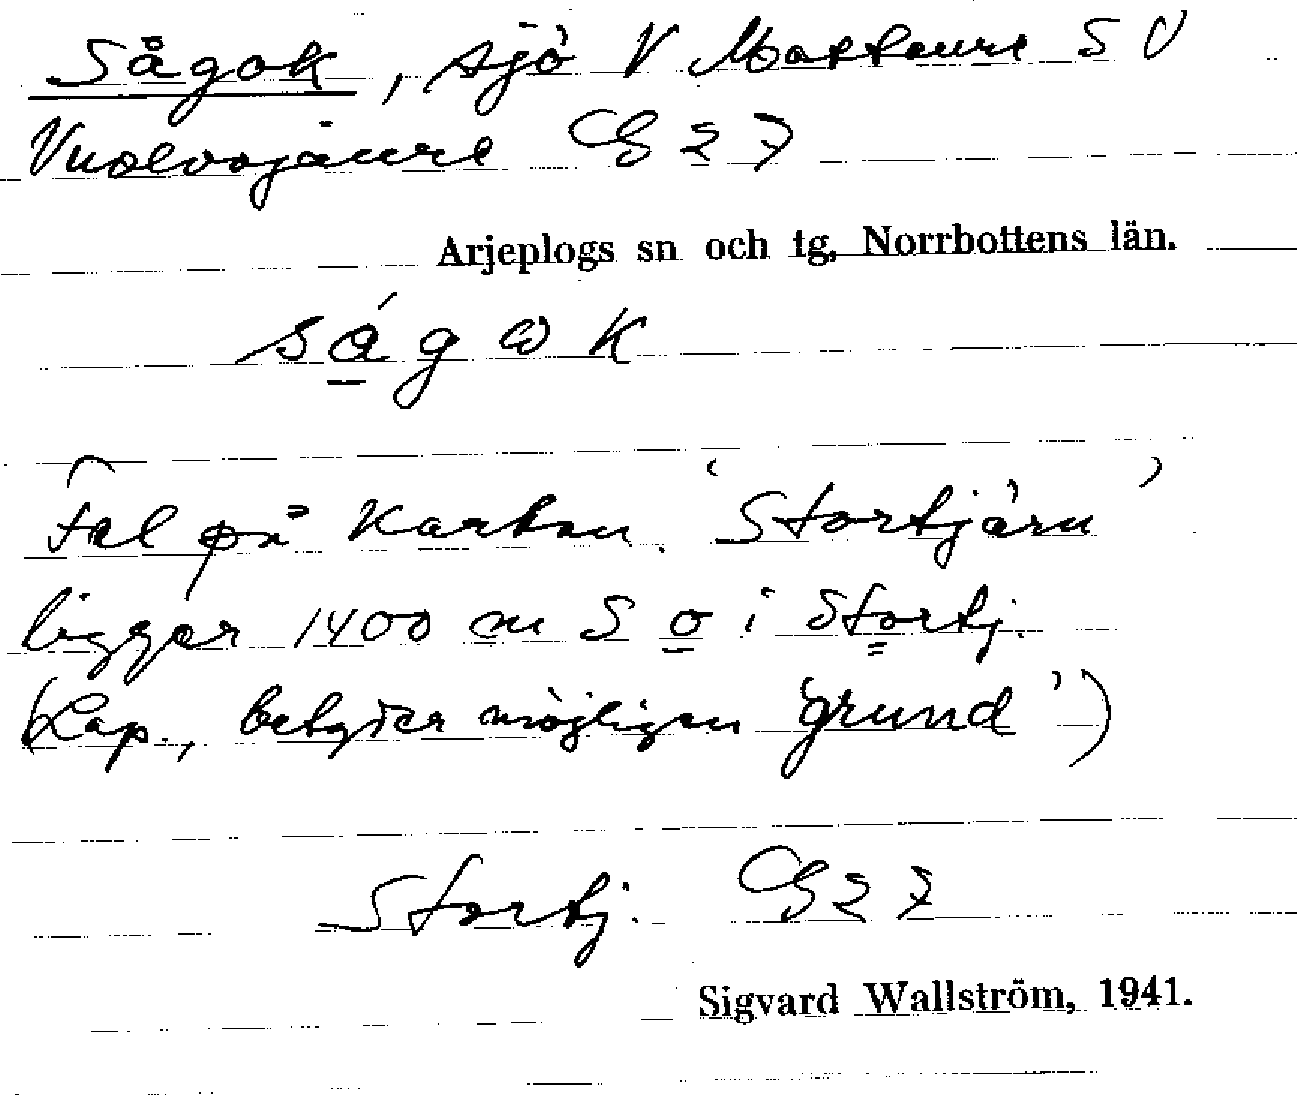 Sågok, sjö V Mattaure S V
Vuolvojaure G 27
Arjeplogs sn och tg, Norrbottens län.
ság ω k
Fel på kartan. 'Stortjärn'
ligger 1400 m S o i Stortj.
(Lap., betyder möjligen 'grund')
Stortj. G 27
Sigvard Wallström, 1941.